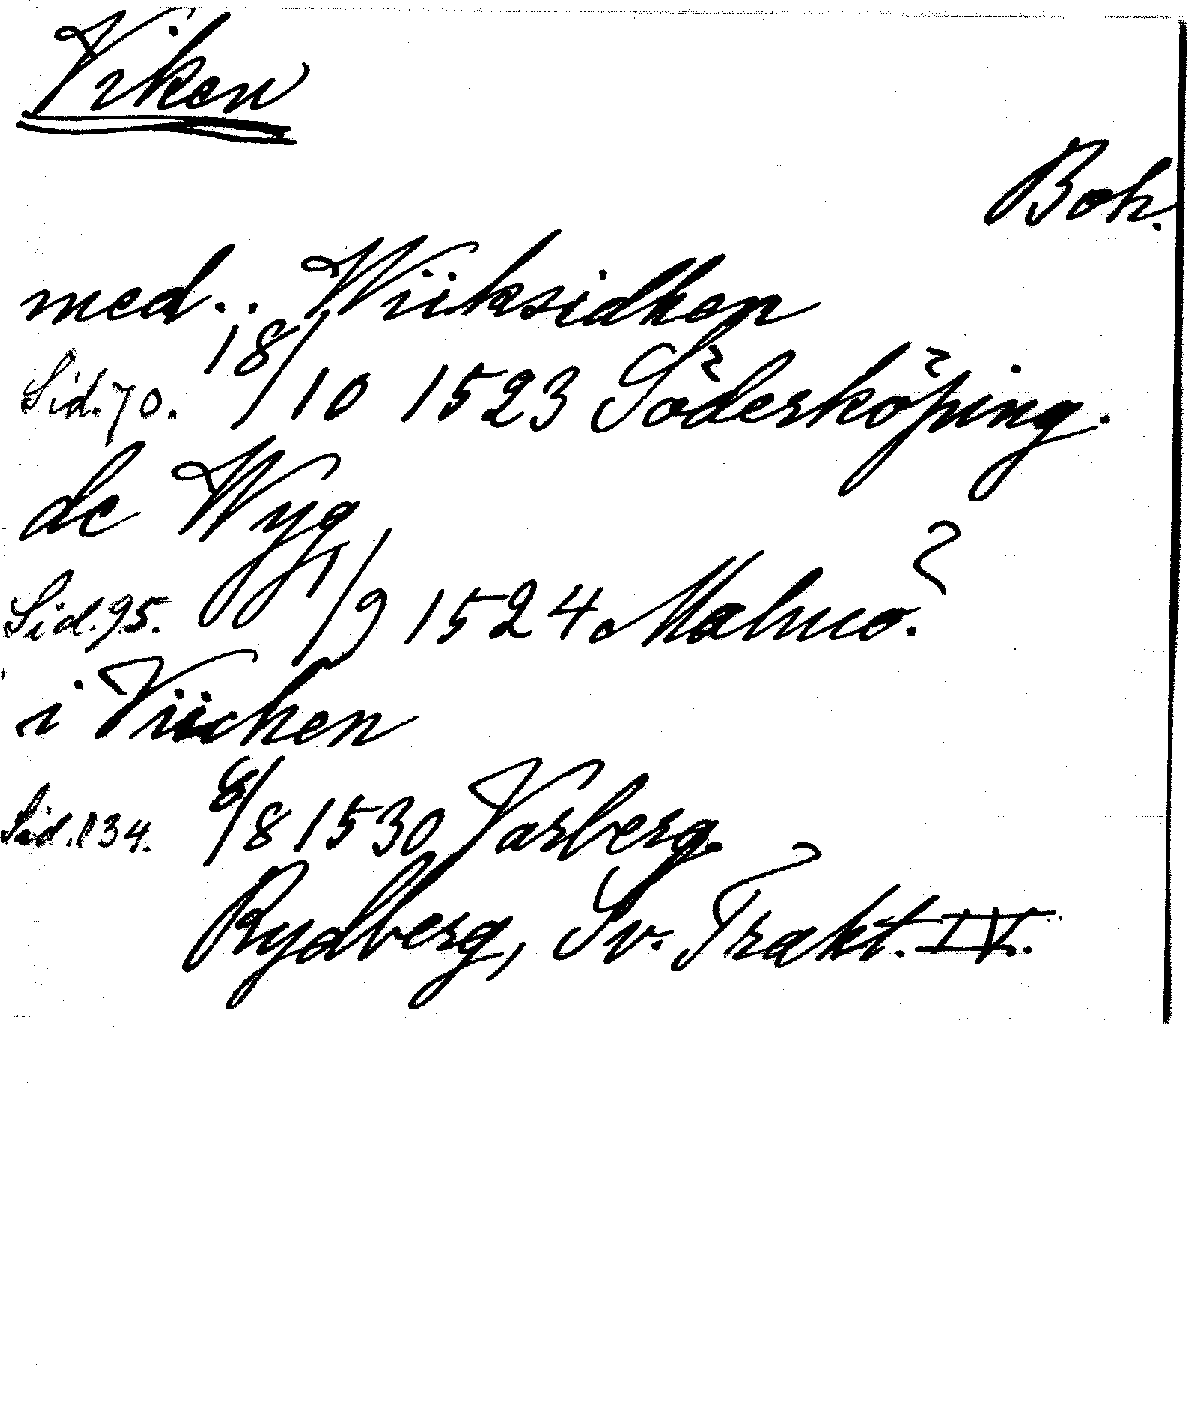 Viken
Boh.
med.. Wiiksidhen
Sid. 70. 18/10 1523 Söderköping.
de Wyg
Sid. 95. 1/9 1524 Malmö.
i Viichen
Sid. 134. 8/8 1530 Varberg
Rydberg, Sv. Trakt. IV.